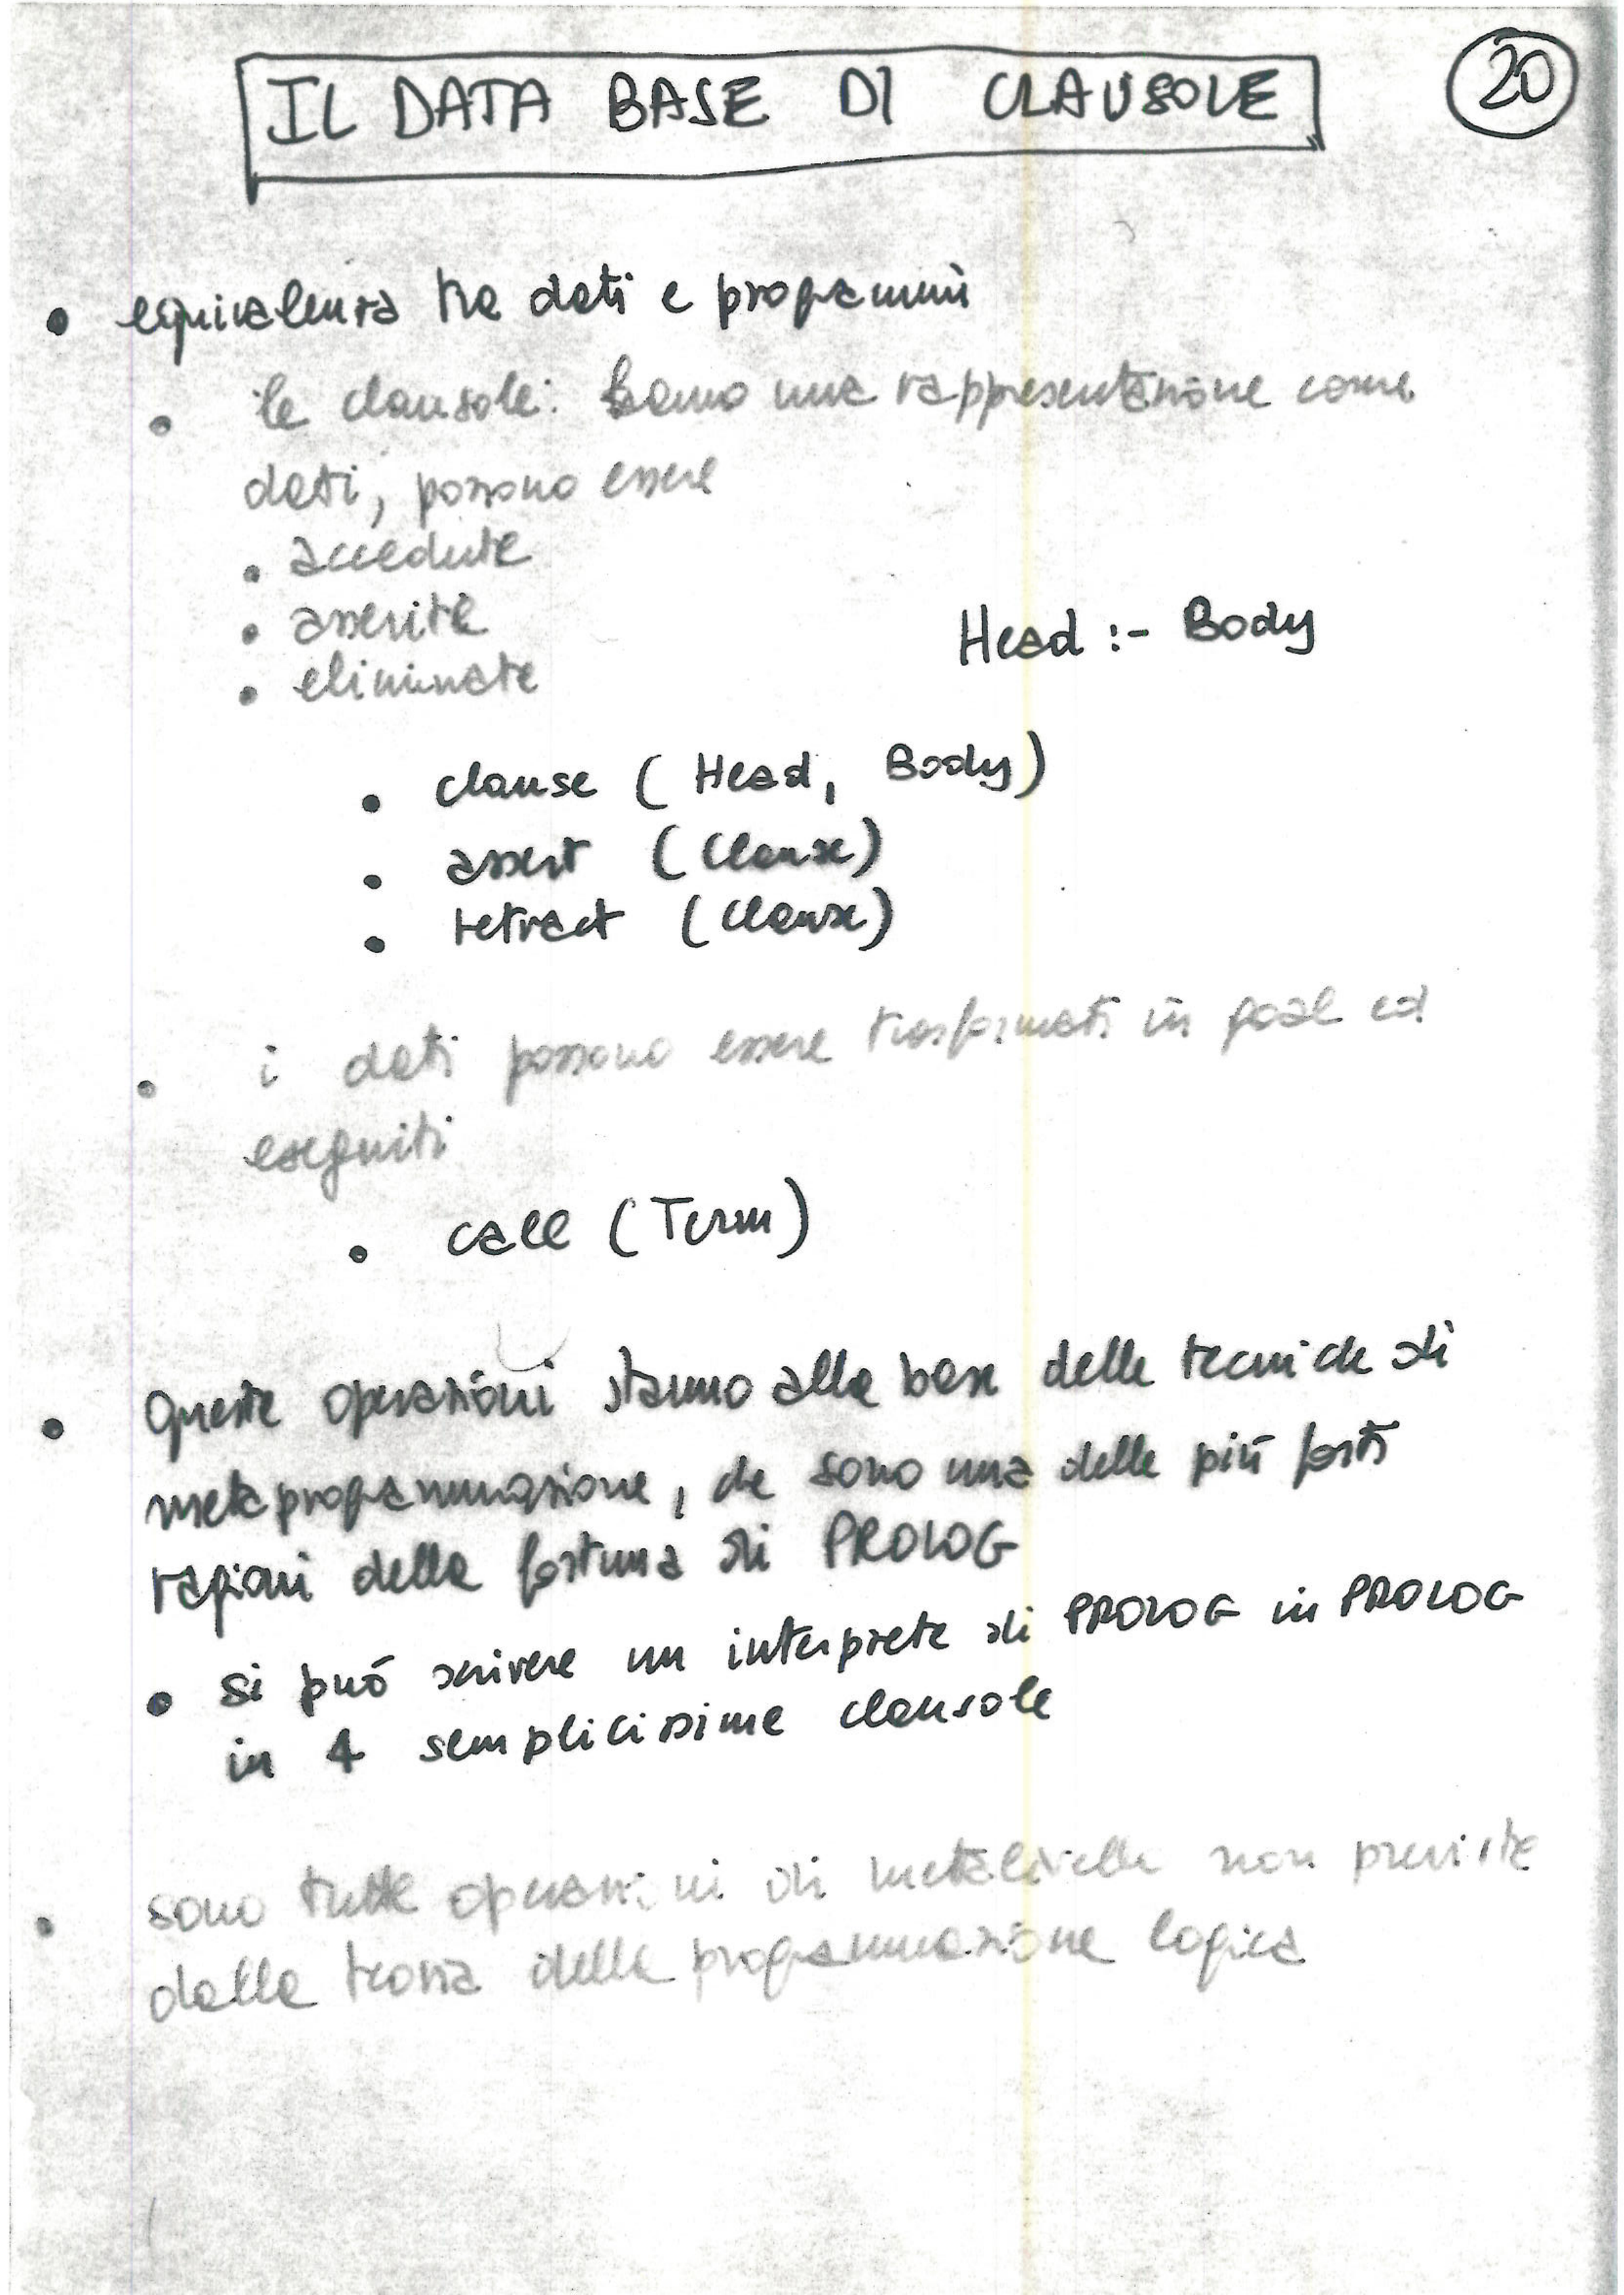 IL DATA BASE DI CLAUSOLE
20
• equivalenza tra dati e programmi
• le clausole: hanno una rappresentazione come
dati, possono essere
• accedute
• asserite
• eliminate
Head :- Body
• clause ( Head, Body)
• assert (Clause)
• retract (Clause)
• i dati possono essere trasformati in goal ed
eseguiti
• call (Term)
• Queste operazioni stanno alla base delle tecniche di
metaprogrammazione, che sono una delle più forti
ragioni della fortuna di PROLOG
• si può scrivere un interprete di PROLOG in PROLOG
in 4 semplicissime clausole
• sono tutte operazioni di metalivello non previste
dalla teoria della programmazione logica